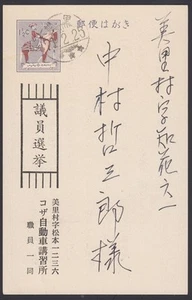 郵便はがき
美里村字知花六一
中村哲三郎様
議員選挙
美里村字松本一二三六
コザ自動車講習所
職員一同